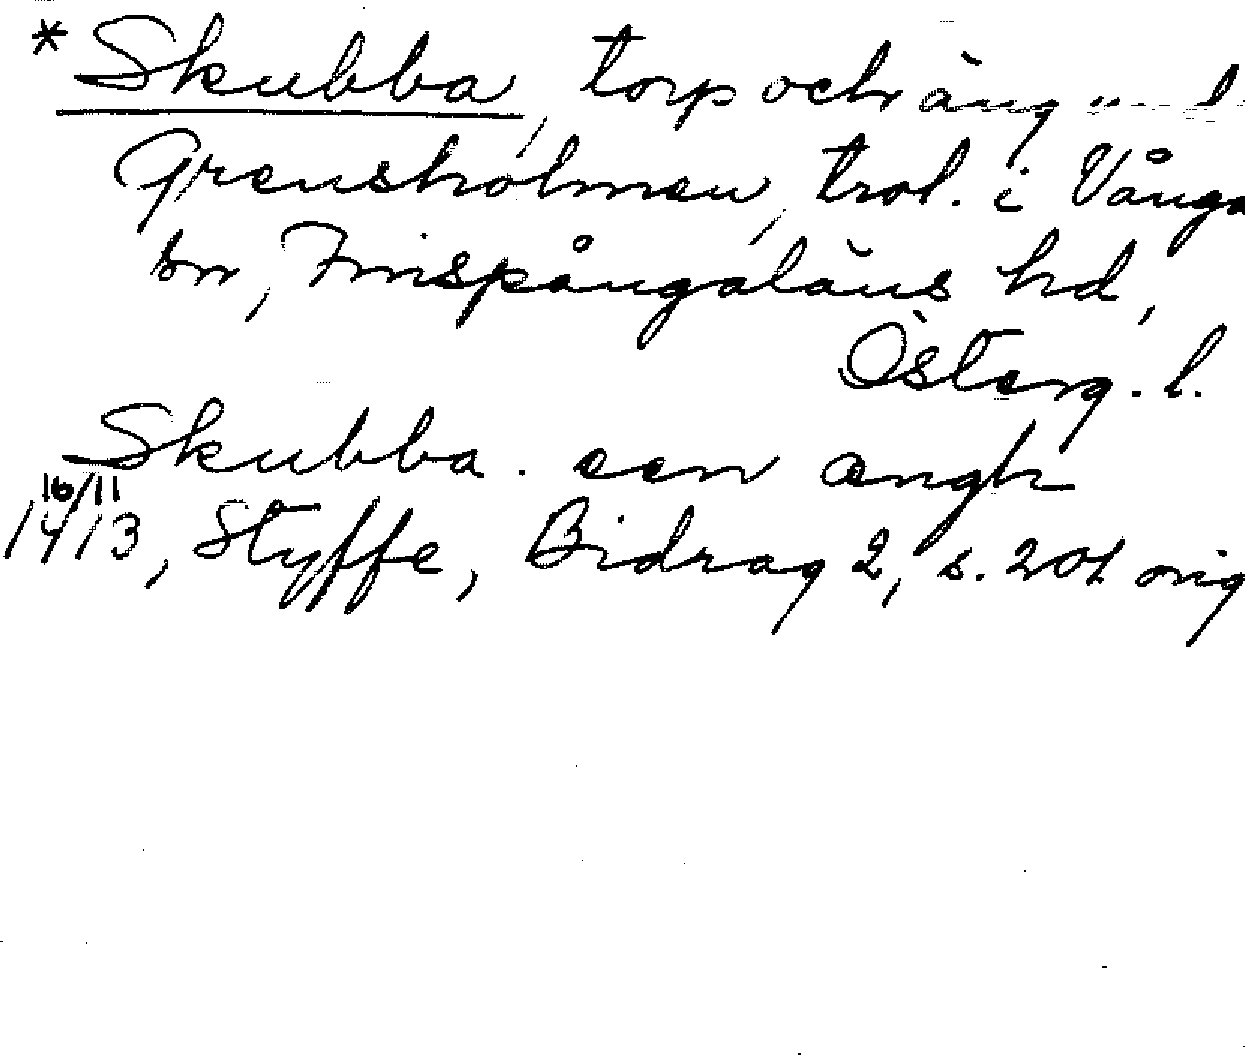 * Skubba, torp och äng
Grensholmen, trol. i Vånga
sn, Finspångaläns hd,
Österg. l.
Skubba. een ængh
16/11
1413, Styffe, Bidrag 2, s. 201 orig